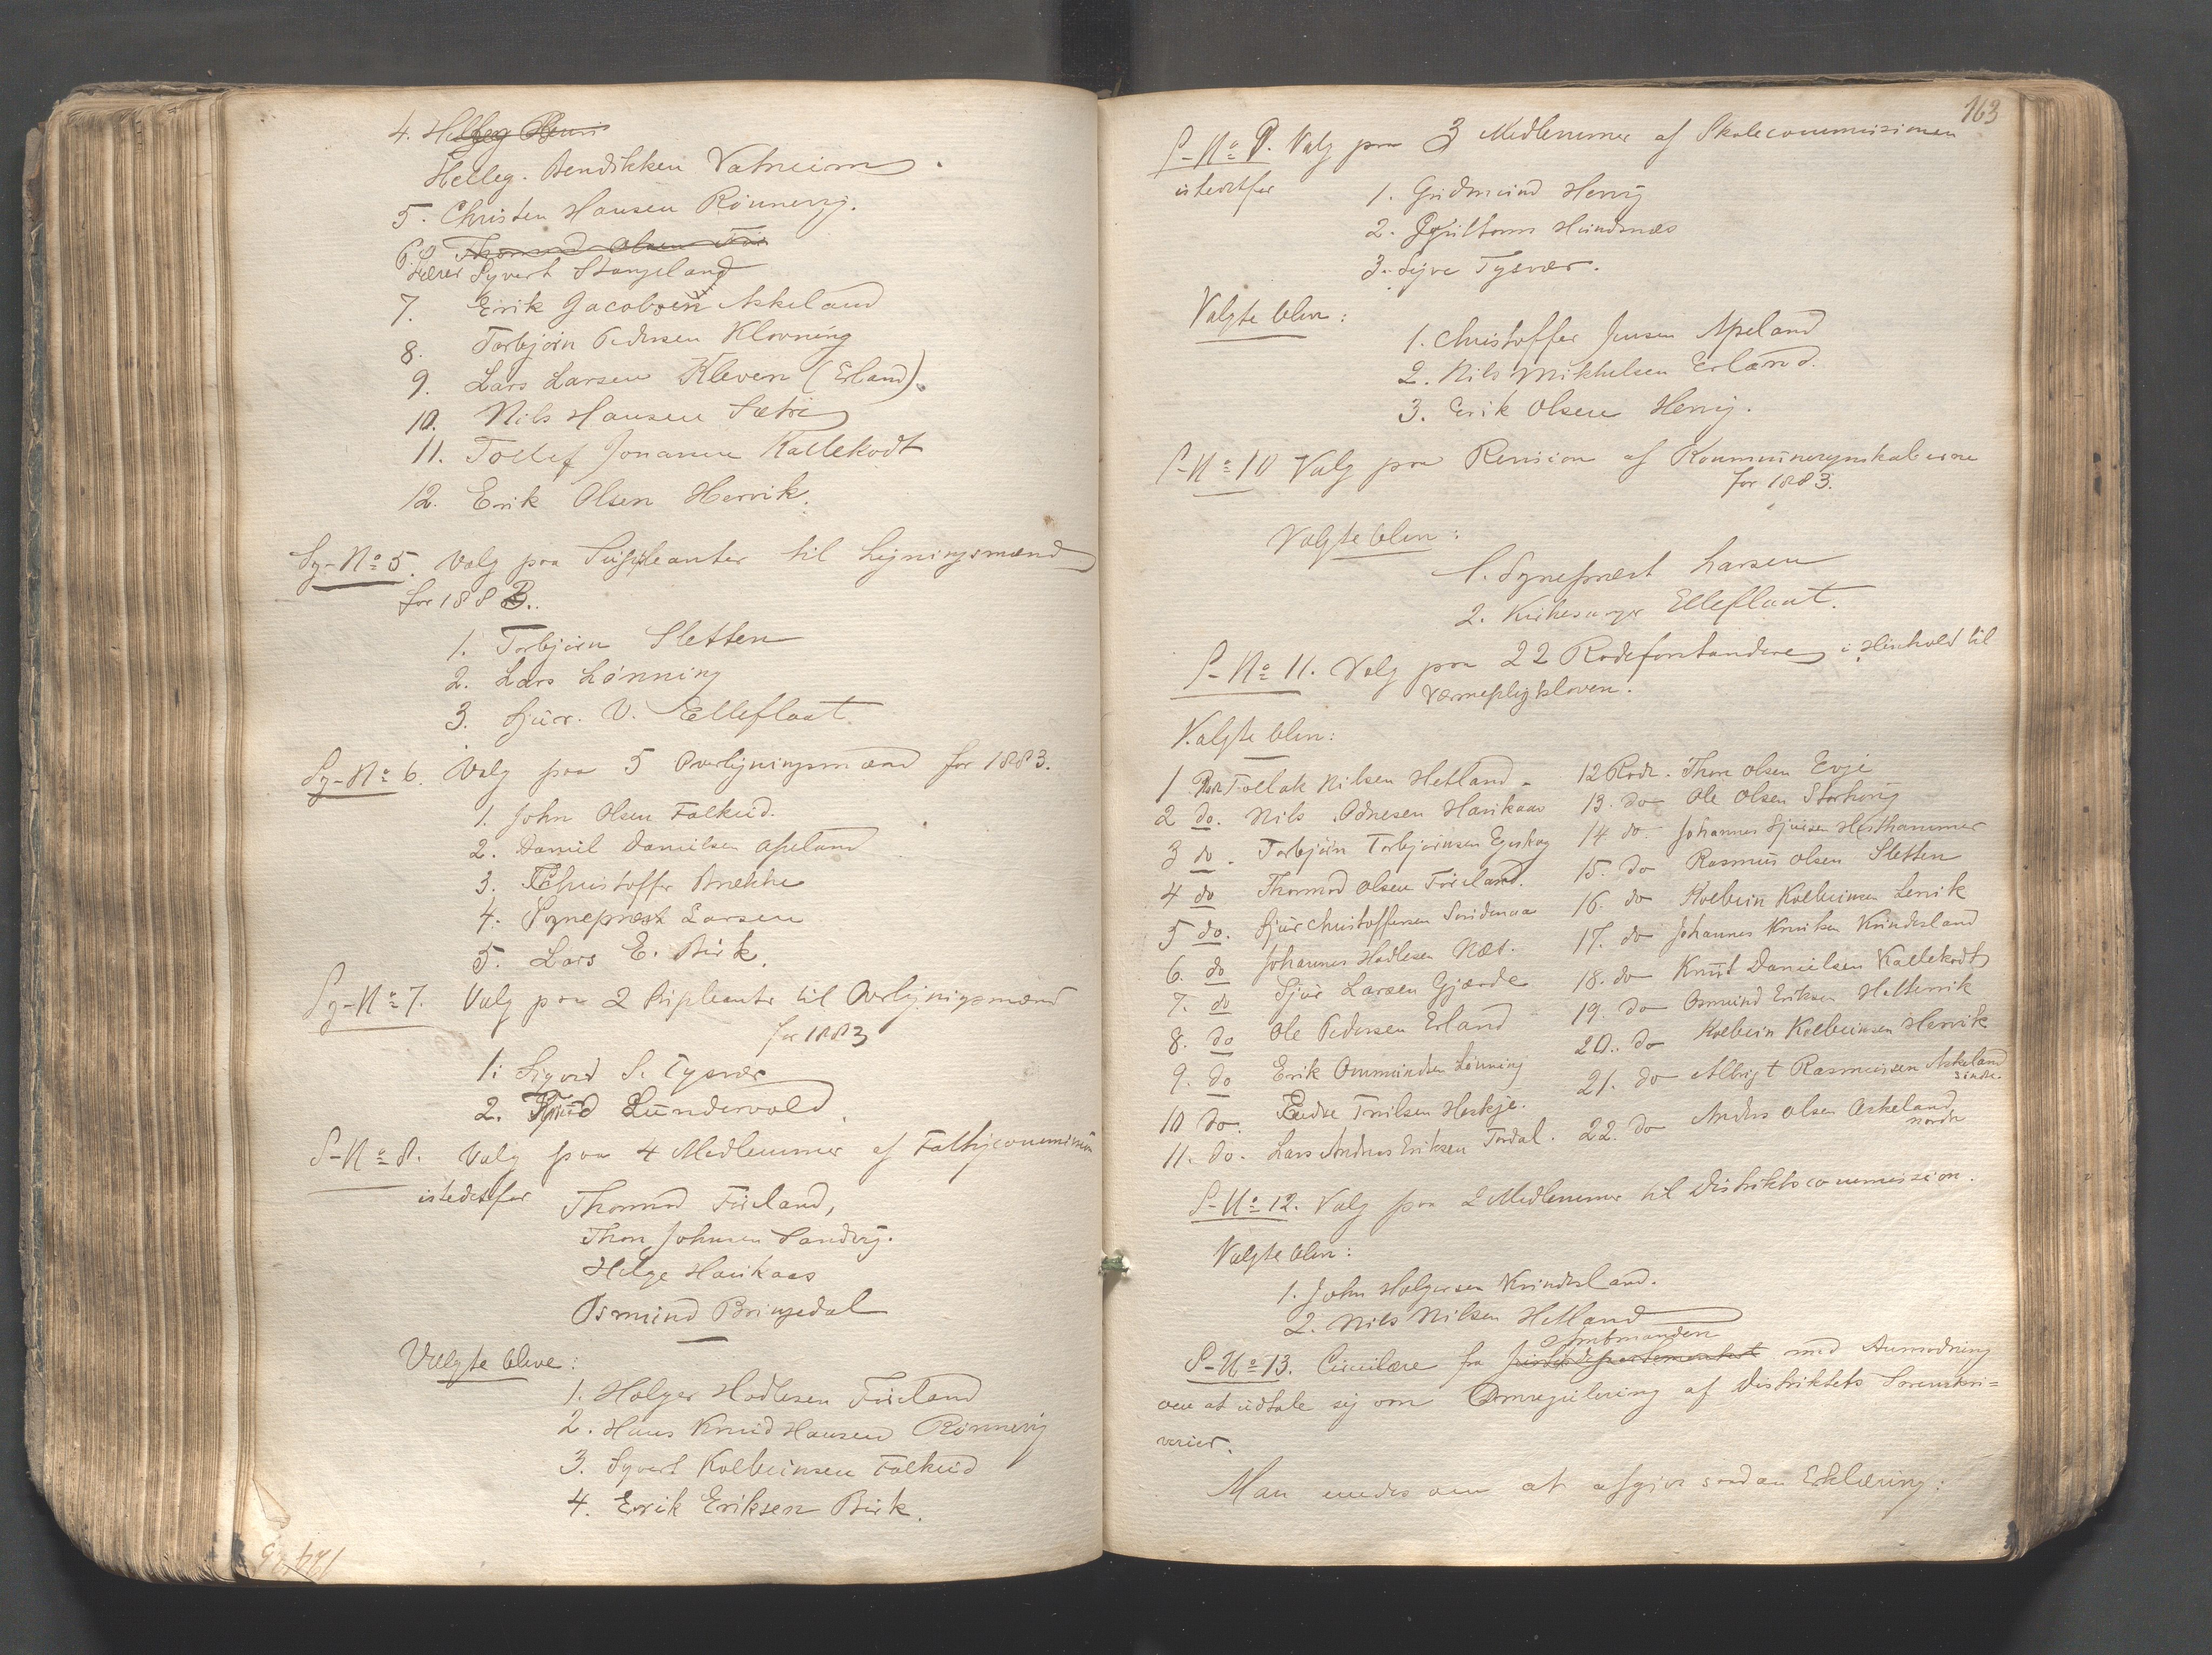 4. Helleg
Helleg. Bendikken Vatneim
5. Christen Hansen Rönnevig.
6. Thormod Olsen För
Lærer Syvert Stangeland
7. Erik Jacobsen Askeland
8. Torbjörn Pedersen Klovning
9. Lars Larsen Kleven (Erland).
10. Nils Hansen Sætre
11. Tollef Jonasen Kallekodt
12. Erik Olsen Hervik.
Sg-No 5. Valg paa Suppleanter til Ligningsmænd
for 1883.
1. Torbjörn Sletten
2. Lars Lönning
3. Sjur. V. Elleflaat
Sg-No 6. Valg paa 5 Overligningsmænd for 1883.
1. John Olsen Falkeid.
2. Daniel Danielsen Apeland
3. Christoffer Brekke
4. Sogneprest Larsen
5. Lars E. Birk.
Sg-No 7. Valg paa 2 Supleanter til Overligningsmænd
for 1883
1. Sigvard S. Tysvær
2. Lundervold.
S-No 8. Valg paa 4 Medlemmer af Fattigcommission
istedetfor Thormod Föreland,
Thore Johnsen Sandvig.
Helge Haukaas
Osmund Bringedal
Valgte bleve:
1. Holger Hodlesen Föreland
2. Hans Knud Hansen Rönnevig
3. Syvert Kolbeinsen Falkeid
4. Erik Eriksen Birk.
163
S-No 9. Valg paa 3 Medlemmer af Skolecommissionen
istedetfor 1. Gudmund Hervig
2. Hindsnæs
3. Tysvær.
Valgte blev:
1. Christoffer Jensen Apeland
2. Nils Mikkelsen Erland.
3. Erik Olsen Hervig.
S-No 10 Valg paa Revision af Kommuneregnskaberne
for 1883.
Valgte blev:
1. Sogneprest Larsen
2. Kirkesanger Elleflaat.
S-No 11. Valg paa 22 Rodeforstandere i Henhold til
Værnepligtsloven.
Valgte blev:
1 Rode Tollak Nilsen Hetland.
2 do. Nils Odnesen Haukaas
3 do. Torbjörn Torbjörnsen Egeskog
4 do Thormod Olsen Föreland.
5 do. Sjur Christoffersen
6. do Johannes Hodlesen Næs.
7. do Sjur Larsen Gjerde
8. do Ole Pedersen Erland
9. do Erik Ommundsen Lönning
10 do. Endre Heskje.
11. do. Lars Andreas Eriksen Tordal.
12 Rode. Thore Olsen Evje
13. do Ole Olsen Storhoug
14 do. Johannes Sjursen Hesthammer
15. do Rasmus Olsen Sletten
16. do Kolbein Kolbeinsen Lervik
17. do Johannes Knutsen Kvindesland
18. do Knut Danielsen Kallekodt
19. do Osmund Eriksen Hettervik
20. do Kolbein Kolbeinsen Hervik
21. do Albrigt Rasmusen Askeland
söndre.
22. do Anders Olsen Askeland
nordre
S-No 12. Valg paa 2 Medlemmer til Distriktscommission.
Valgte blev:
1. John Holgersen Kvindesland.
2. Nils Nilsen Hetland
Amtmanden
S-No 13. Circulære fra Justitsdepartementet med Anmodning
om at udtale sig om Omregulering af Distriktets Sorenskri=
verier.
Man enedes om at afgive saadan Erklæring: